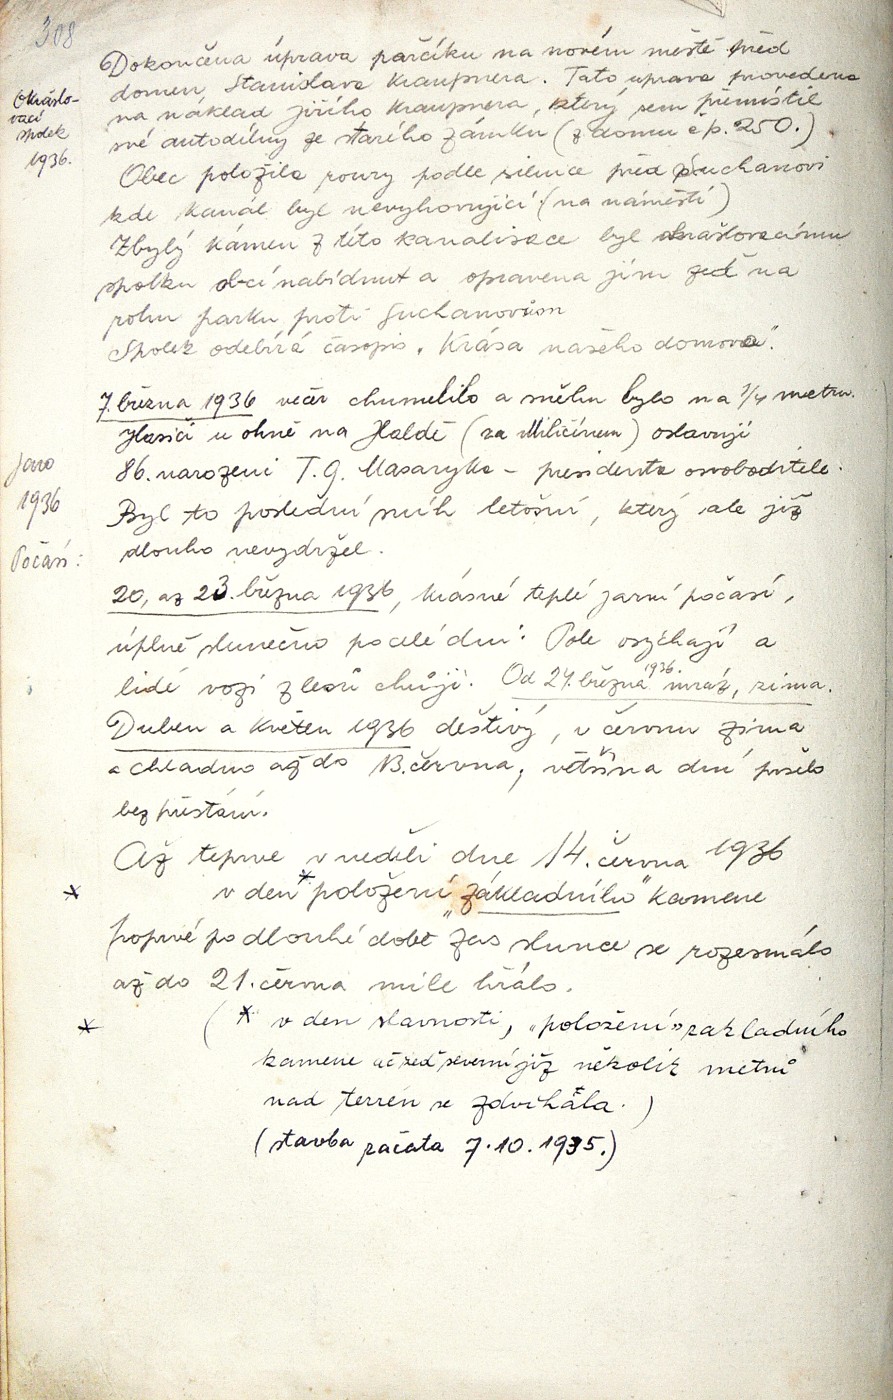 308
Okrašlo-
vací
spolek
1936.
Dokončena úprava parčíku na novém městě před
domem Stanislava Kraupnera. Tato uprava provedena
na náklad Jiřího Kraupnera, který sem přemístil
své autodílny ze starého zámku (z domu čp. 250.)
Obec položila roury podle silnice před Suchanovi
kde kanál byl nevyhovující (na náměstí)
Zbylý kámen z této kanalisace byl okrašlovacímu
spolku obcí nabídnut a opravena jím zeď na
rohu parku proti Suchanovům
Spolek odebírá časopis „Krása našeho domova".
7. března 1936 večer chumelilo a sněhu bylo na 1/4 metru.
Hasiči u ohně na Haldě (za Miličínem) oslavují
86. narozeni T. G. Masaryka – presidenta osvoboditele.
Jaro
1936
Byl to poslední sníh letošní, který ale již
dlouho nevydržel.
Počasí:
20, až 23. března 1936, krásné teplé jarní počasí,
úplně slunečno po celé dni. Pole osýchají a
lidé vozí z lesů chvůji. Od 24. března 1936 mráz, zima.
Duben a květen 1936 deštivý, v červnu zima
a chladno až do 13. června, většina dní pršelo
bez přestání.
Až teprve v neděli dne 14. června 1936
* v den * položení „základního" kamene
poprvé po dlouhé době zas slunce se rozesmálo
až do 21. června mile hřálo.
* (* v den slavnosti, „položení" zakladního
kamene ač zeď severní již několik metrů
nad terrén se zdvíhala.)
(stavba začata 7.10.1935.)